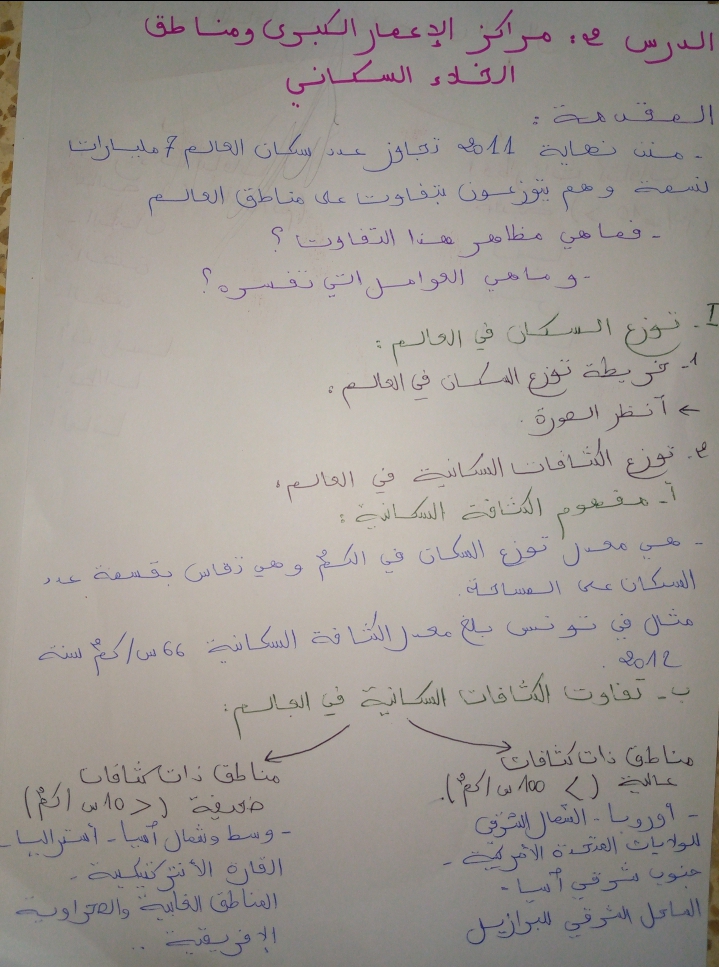 الدرس 2: مراكز الإعمار الكبرى ومناطق
الخلاء السكاني
المقدمة :
- منذ نهاية 2011 تجاوز عدد سكان العالم 7 مليارات
نسمة وهم يتوزعون بتفاوت على مناطق العالم
- فماهي مظاهر هذا التفاوت ؟
- وماهي العوامل التي تفسره ؟
I- توزع السكان في العالم :
1- خريطة توزع السكان في العالم :
← أنظر الصورة .
2- توزع الكثافات السكانية في العالم :
أ- مفهوم الكثافة السكانية :
- هي معدل توزع السكان في الكم² وهي تقاس بقسمة عدد
السكان على المساحة .
مثال في تونس بلغ معدل الكثافة السكانية 66 س/كم² سنة
2012 .
ب- تفاوت الكثافات السكانية في العالم :
مناطق ذات كثافات
عالية (> 100 س/كم²).
- أوروبا - الشمال الشرقي
للولايات المتحدة الأمريكية -
جنوب شرقي آسيا -
الساحل الشرقي للبرازيل
مناطق ذات كثافات
ضعيفة (< 10 س/كم²)
- وسط وشمال آسيا - أستراليا -
القارة الأنتركتيكية -
المناطق الغابية والصحراوية
الإفريقية ..